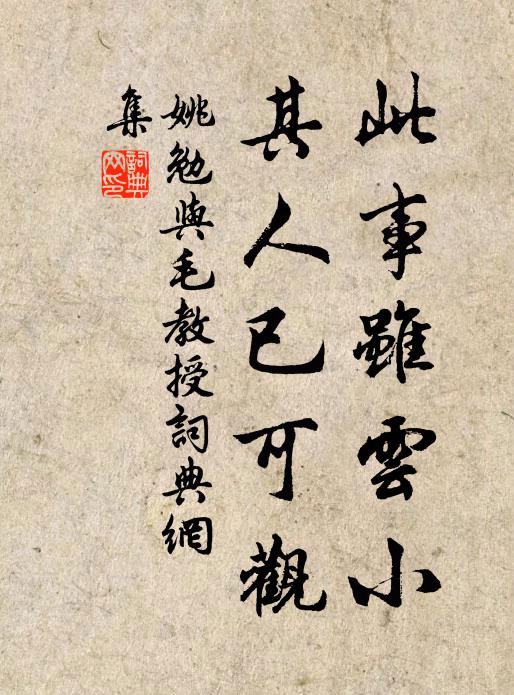 此事雖雲小
其人已可觀
姚勉與毛教授詞典網
集
詞典
网印